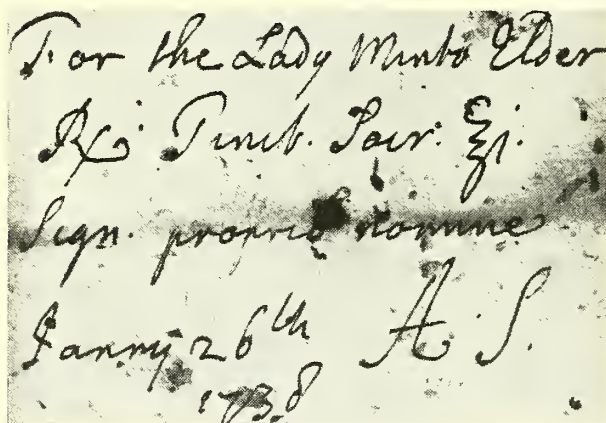 For the Lady Minto Elder
℞ Tinct. Sacr. ℥j.
Sign. proprio nomine
Janry 26th A S.
1738